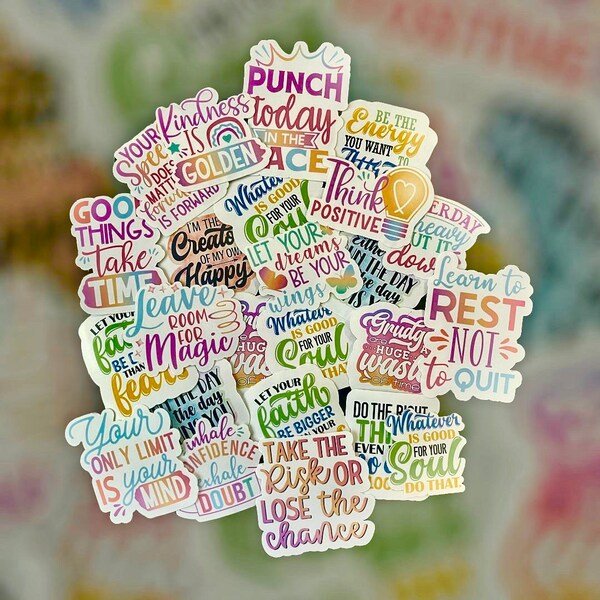 PUNCH
today
IN THE
ACE
YOUR
Spee
DOES
MATT
forwa
IS FORWARD
Kindness
IS
GOLDEN
BE THE
Energy
YOU WANT TO
Think
POSITIVE
GOO
THINGS
Take
TIME
I'M THE
Creato
OF MY OW
Happy
Whatever
IS GOOD
FOR YOUR
LET YOUR
dreams
BE YOUR
wings
ERDAY
heavy
UT IT
dow
IN THE DAY
the day
Learn to
REST
NOT
to QUIT
LET YOUR
fa
BE
THAN
fear
Leave
ROOM
FOR
Magic
Whatever
IS GOOD
FOR YOUR
Soul
THAT.
Grudg
HUGE
wast
OF time
HUG
was
Your
ONLY LIMIT
IS your
MIND
THE DAY
the day
inhale
ONFIDENCE
exhale
DOUBT
LET YOUR
faith
BE BIGGER
TAKE THE
Risk OR
LOSE the
chance
DO THE RIGHT
THI
EVEN
Whatever
IS GOOD
FOR YOUR
Soul
DO THAT.